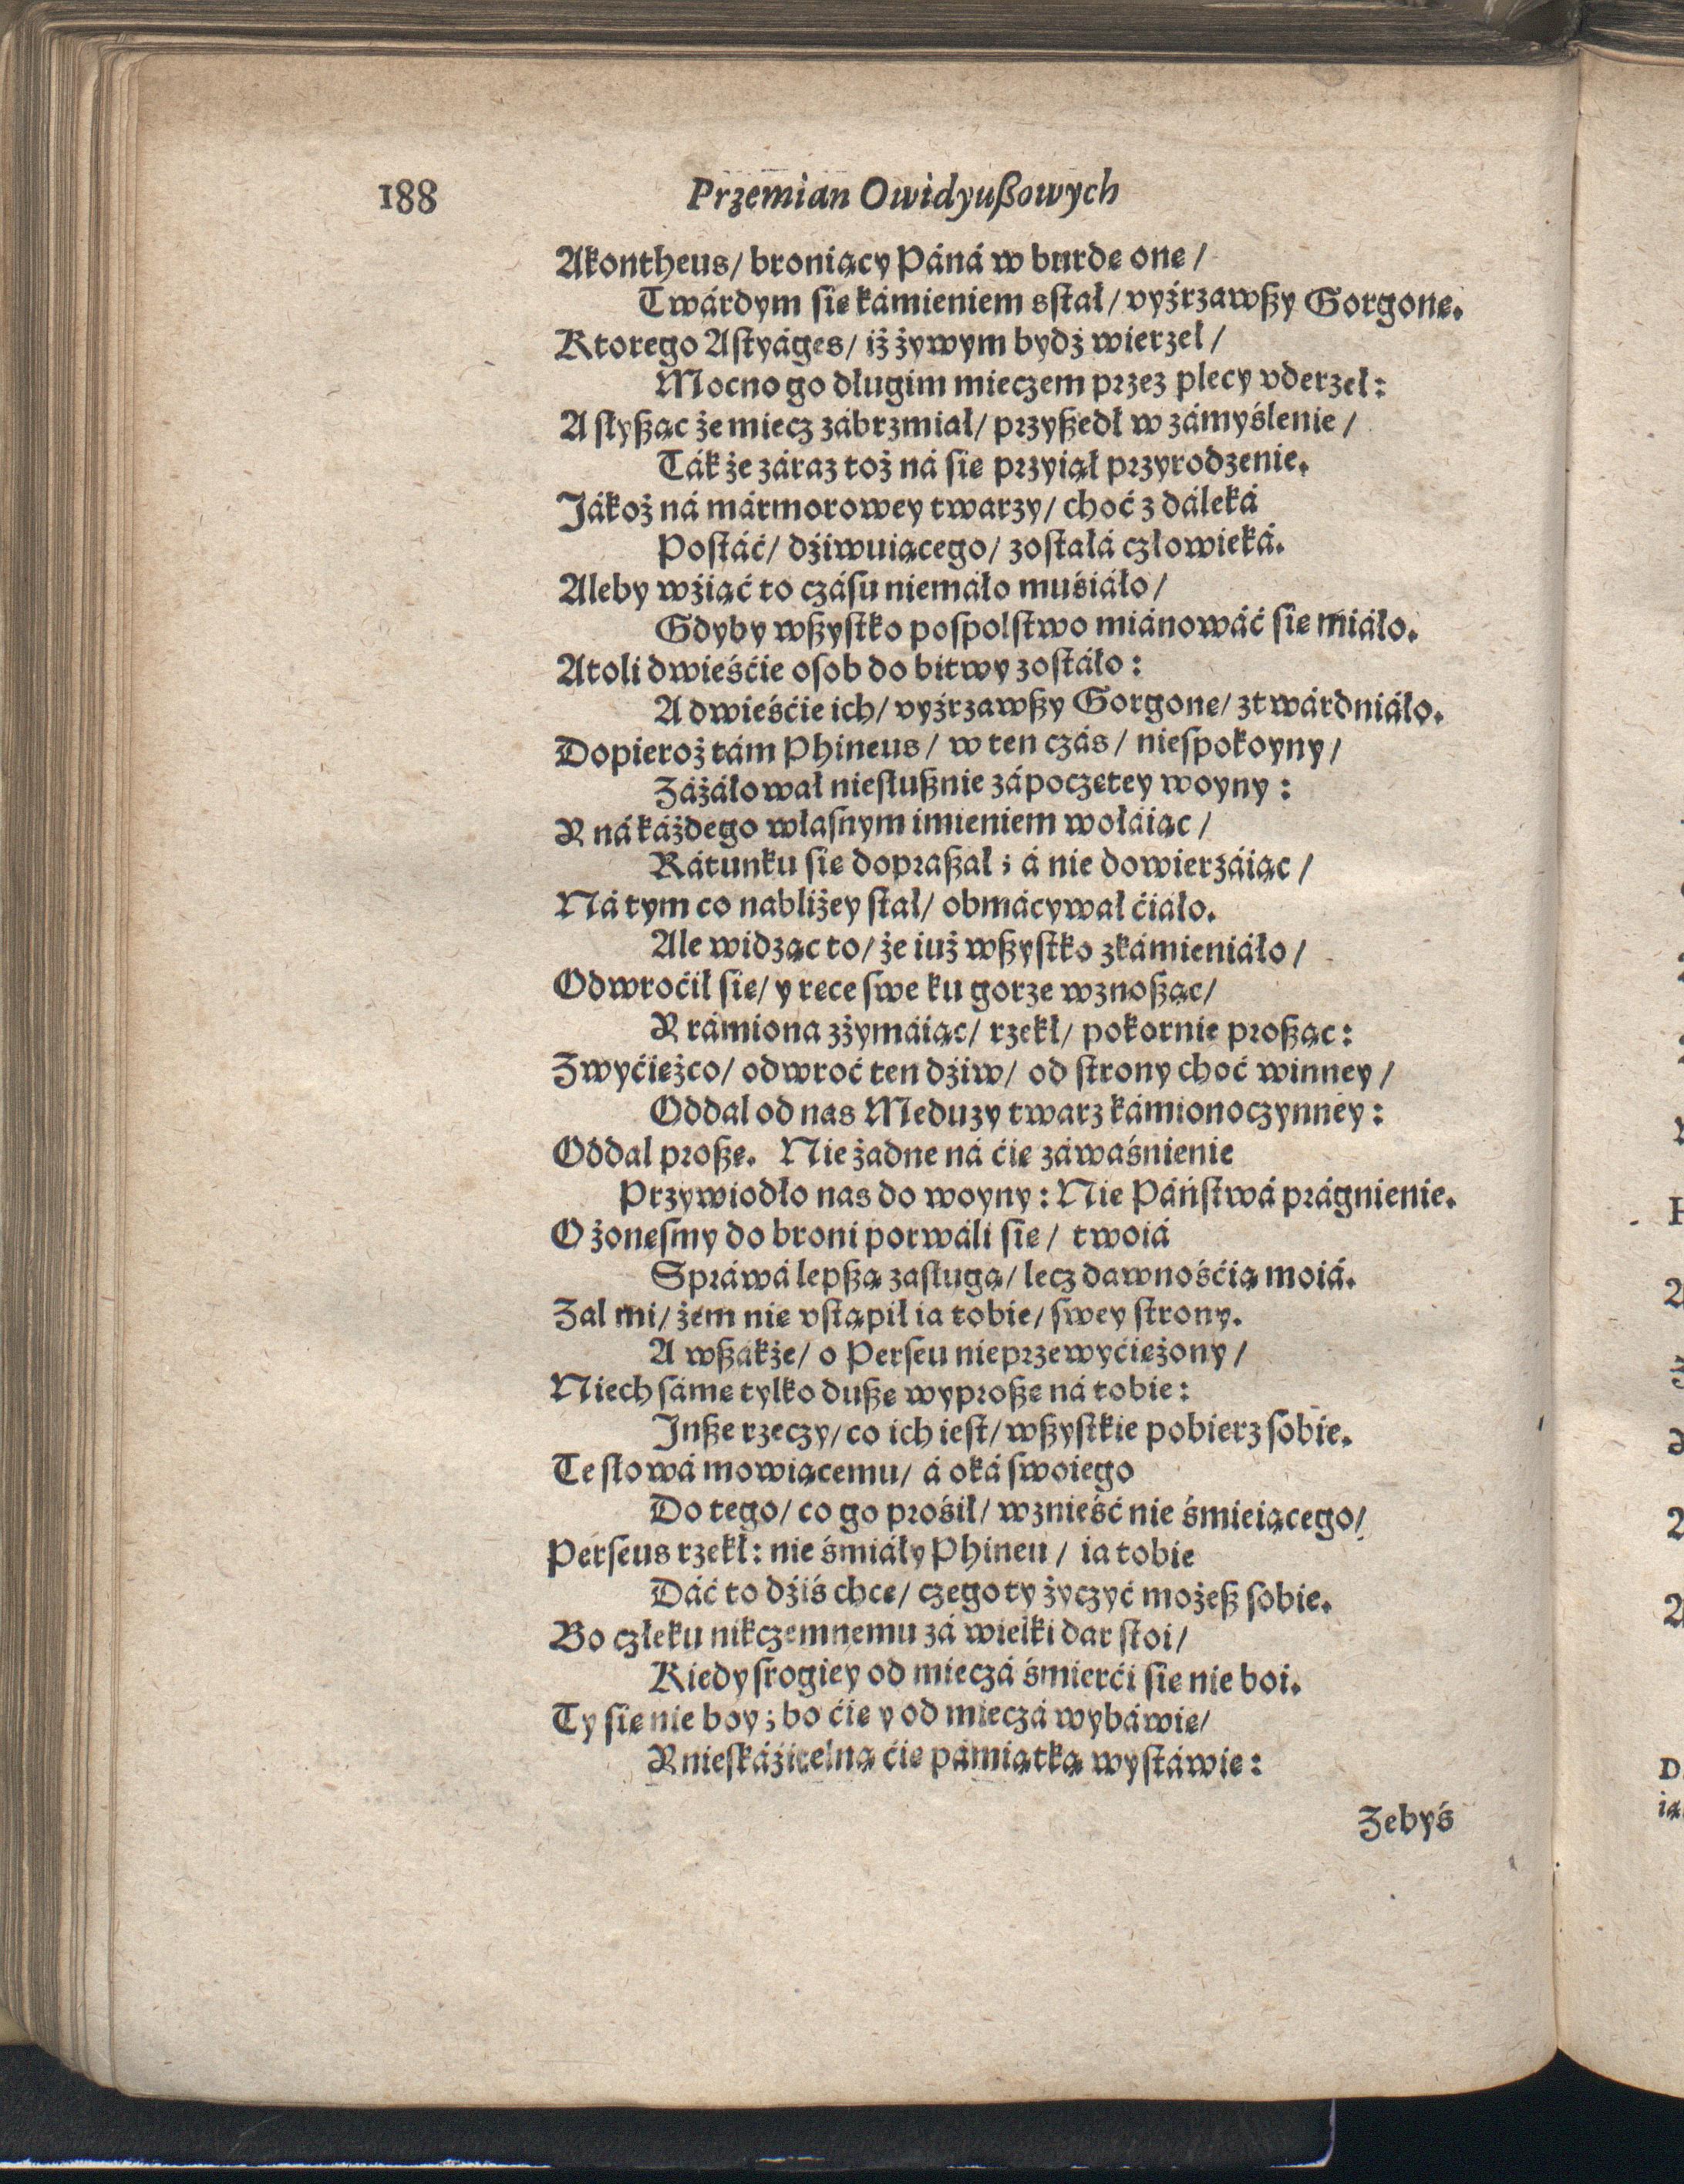 188 Przemian Owidyußowych
Akontheus/ broniący Páná w burdę onę/
Twárdym się kámieniem sstał/ vyźrzawßy Gorgonę.
Ktorego Astyáges/ iż żywym bydź wierzeł/
Mocno go długim mieczem przez plecy vderzeł:
A słyßąc że miecz zábrzmiał/ przyßedł w zámyślenie/
Ták że záraz toż ná się przyiął przyrodzenie.
Jákoż ná mármorowey twarzy/ choć z dáleká
Postáć/ dźiwuiącego/ zostałá człowieká.
Aleby wźiąć to czásu niemáło muśiáło/
Gdyby wßystko pospolstwo miánowáć się miáło.
Atoli dwieśćie osob do bitwy zostáło:
A dwieśćie ich/ vyźrzawßy Gorgonę/ ztwárdniáło.
Dopieroż tám Phineus/ w ten czás/ niespokoyny/
Záżáłował niesłußnie zápoczętey woyny:
Y ná káżdego własnym imieniem wołáiąc/
Rátunku się dopraßał; á nie dowierzáiąc/
Ná tym co nabliżey stał/ obmácywał ćiáło.
Ale widząc to/ że iuż wßystko zkámieniáło/
Odwroćił się/ y ręce swe ku gorze wznoßąc/
Y rámiona zżymáiąc/ rzekł/ pokornie proßąc:
Zwyćięzco/ odwroć ten dźiw/ od strony choć winney/
Oddal od nas Meduzy twarz kámionoczynney:
Oddal proßę. Nie żadne ná ćię záwaśnienie
Przywiodło nas do woyny: Nie Páństwá prágnienie.
O żonęsmy do broni porwáli się/ twoiá
Spráwá lepßą zasługą/ lecz dawnośćią moiá.
Zal mi/ żem nie vstąpił ia tobie/ swey strony.
A wßákże/ o Perseu nieprzewyćiężony/
Niech sámę tylko dußę wyproßę ná tobie:
Inße rzeczy/ co ich iest/ wßystkie pobierz sobie.
Te słowá mowiącemu/ á oká swoiego
Do tego/ co go prośił/ wznieść nie śmieiącego/
Perseus rzekł: nie śmiáły Phineu/ ia tobie
Dáć to dźiś chcę/ czego ty życzyć możeß sobie.
Bo człeku nikczemnemu zá wielki dar stoi/
Kiedy srogiey od mieczá śmierći się nie boi.
Ty się nie boy; bo ćię y od mieczá wybáwię/
Y nieskáźitelną ćię pámiątką wystáwię:
Zebyś